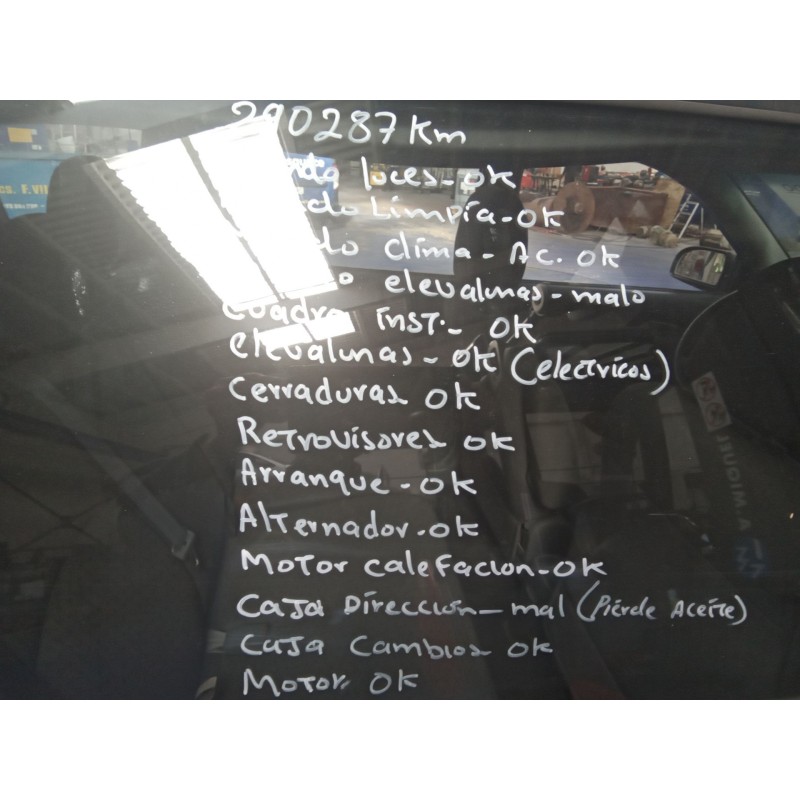 290287 Km
luces - OK
Limpia - OK
clima - Ac. OK
elevalunas - malo
Cuadro INST. - OK
elevalunas - OK (electricos)
Cerraduras OK
Retrovisores OK
Arranque - OK
Alternador - OK
Motor calefacion - OK
Caja Direccion - mal (Pierde Aceite)
Caja Cambios OK
Motor OK